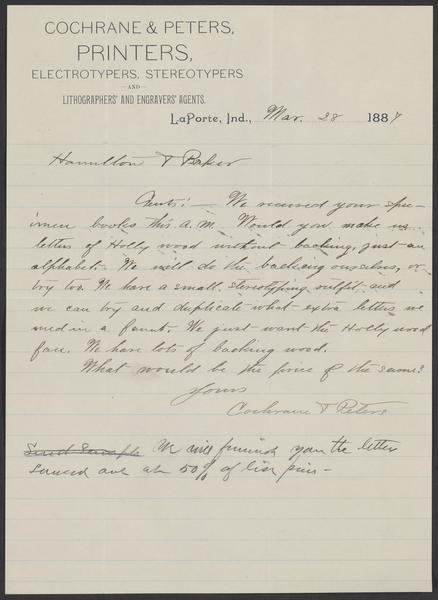 COCHRANE & PETERS,
PRINTERS,
ELECTROTYPERS, STEREOTYPERS
—AND—
LITHOGRAPHERS' AND ENGRAVERS' AGENTS.
LaPorte, Ind., Mar. 28 1887
Hamilton & Baker
Gents:— We received your spec-
imen books this A.M. Would you make us
letters of Holly wood without backing, just an
alphabet. We will do the backing ourselves, or
try to. We have a small stereotyping outfit and
we can try and duplicate what extra letters we
need in a font. We just want the Holly wood
face. We have lots of backing wood.
What would be the price of the same?
Yours
Cochrane & Peters
Send Sample We will furnish you the letter
sawed out at 50% of list price—